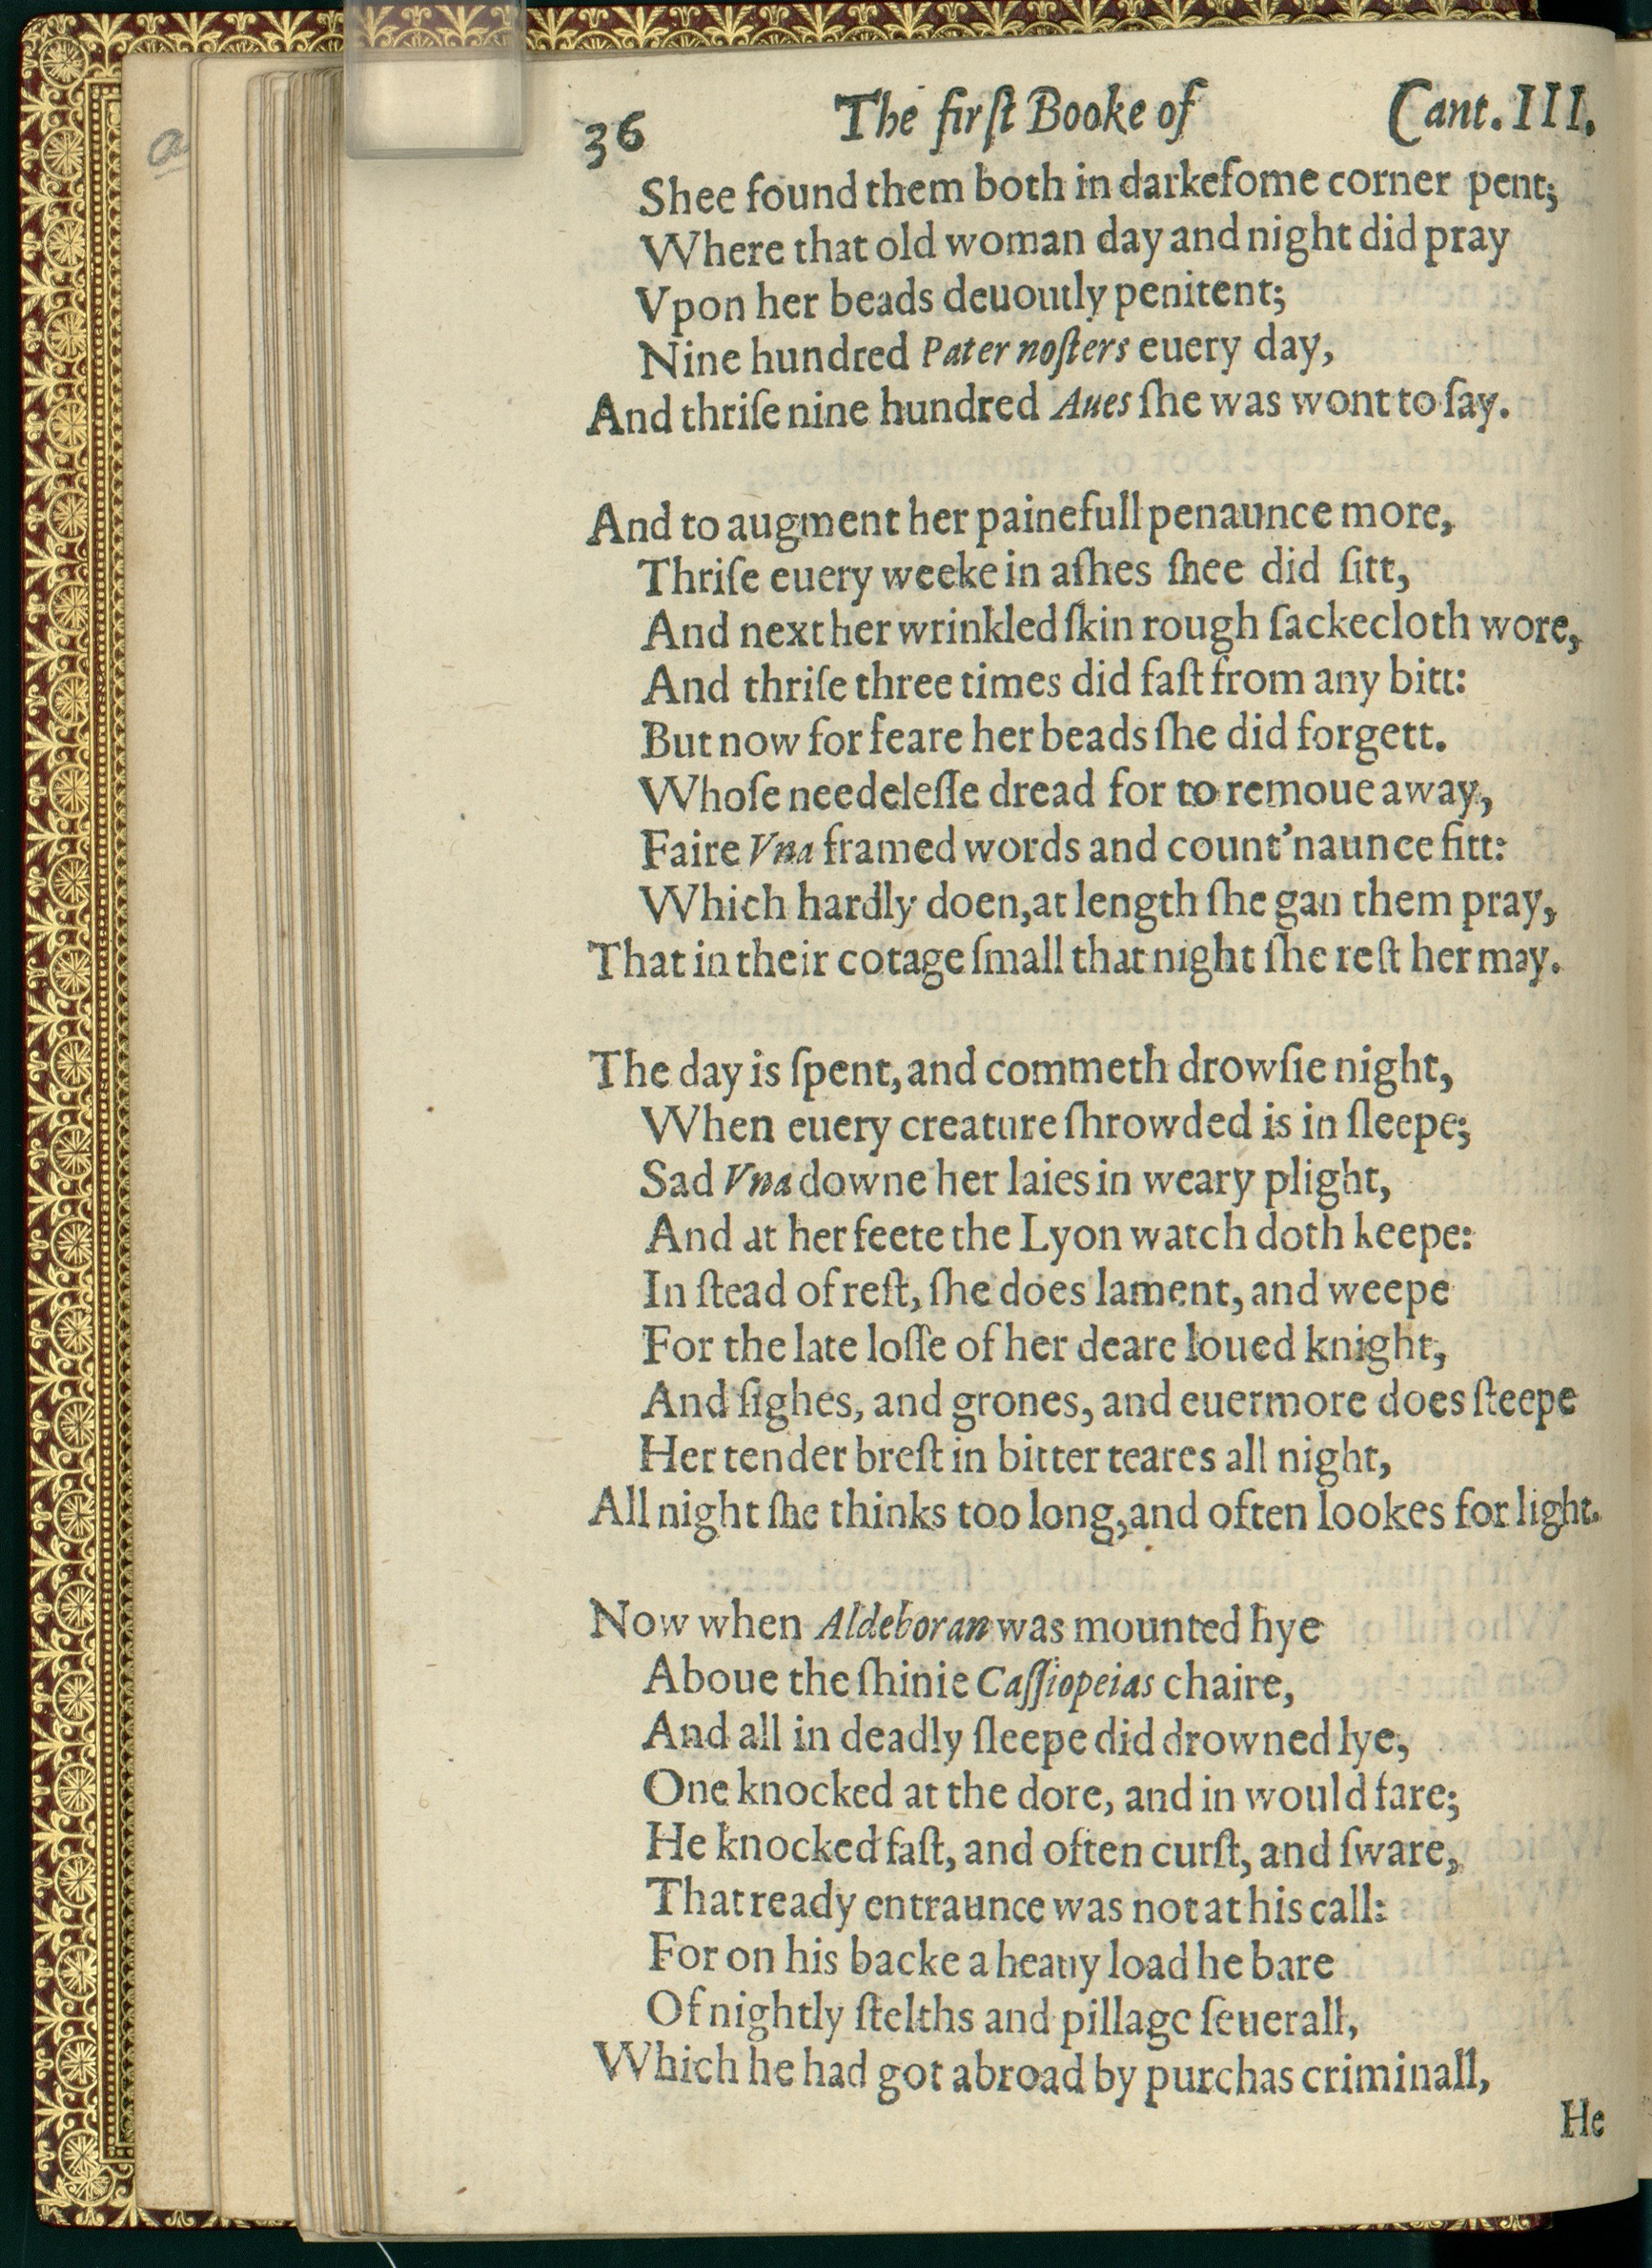 a
36 The firſt Booke of Cant. III.
Shee found them both in darkeſome corner pent;
Where that old woman day and night did pray
Vpon her beads deuoutly penitent;
Nine hundred Pater noſters euery day,
And thriſe nine hundred Aues ſhe was wont to ſay.
And to augment her painefull penaunce more,
Thriſe euery weeke in aſhes ſhee did ſitt,
And next her wrinkled ſkin rough ſackecloth wore,
And thriſe three times did faſt from any bitt:
But now for feare her beads ſhe did forgett.
Whoſe needeleſſe dread for to remoue away,
Faire Vna framed words and count'naunce fitt:
Which hardly doen, at length ſhe gan them pray,
That in their cotage ſmall that night ſhe reſt her may.
The day is ſpent, and commeth drowſie night,
When euery creature ſhrowded is in ſleepe;
Sad Vna downe her laies in weary plight,
And at her feete the Lyon watch doth keepe:
In ſtead of reſt, ſhe does lament, and weepe
For the late loſſe of her deare loued knight,
And ſighes, and grones, and euermore does ſteepe
Her tender breſt in bitter teares all night,
All night ſhe thinks too long, and often lookes for light.
Now when Aldeboran was mounted hye
Aboue the ſhinie Caſſiopeias chaire,
And all in deadly ſleepe did drowned lye,
One knocked at the dore, and in would fare;
He knocked faſt, and often curſt, and ſware,
That ready entraunce was not at his call:
For on his backe a heauy load he bare
Of nightly ſtelths and pillage ſeuerall,
Which he had got abroad by purchas criminall,
He